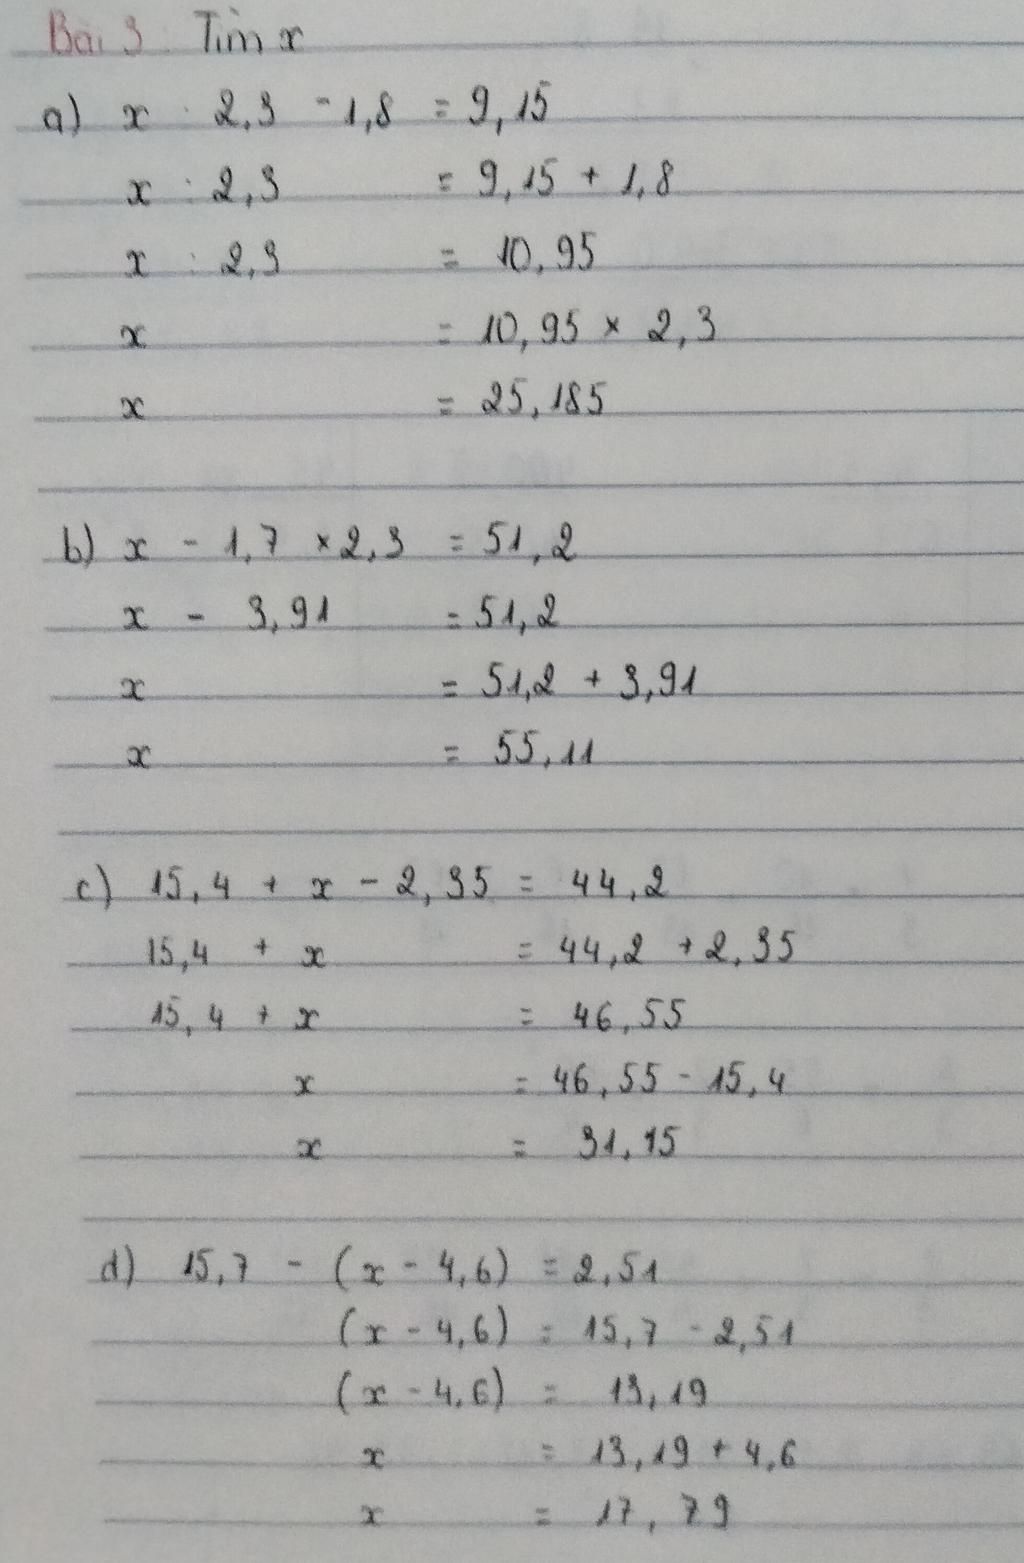 Bài 3 Tìm x
a) x : 2,3 - 1,8 = 9,15
x : 2,3 = 9,15 + 1,8
x : 2,3 = 10,95
x = 10,95 × 2,3
x = 25,185
b) x - 1,7 × 2,3 = 51,2
x - 3,91 = 51,2
x = 51,2 + 3,91
x = 55,11
c) 15,4 + x - 2,35 = 44,2
15,4 + x = 44,2 + 2,35
15,4 + x = 46,55
x = 46,55 - 15,4
x = 31,15
d) 15,7 - (x - 4,6) = 2,51
(x - 4,6) = 15,7 - 2,51
(x - 4,6) = 13,19
x = 13,19 + 4,6
x = 17,79